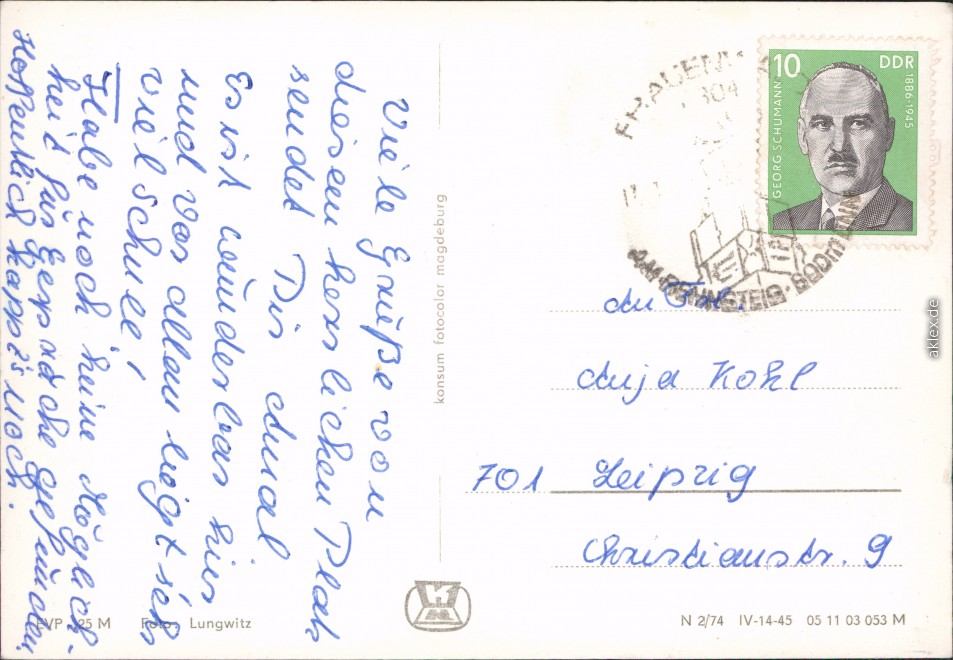 Viele Grüße von
diesem herrlichen Platz
sendet Dir
Es ist wunderbar hier
und vor allem liegt sich
viel Schnee!
Habe noch keine Möglich-
keit für Gespräche gefunden.
Hoffentlich happt's noch.
EVP -,25 M Foto: Lungwitz
konsum fotocolor magdeburg
10 DDR
GEORG SCHUMANN 1886-1945
FRAUENW
AM RENNSTEIG
An Frl.
Anja Kohl
701 Leipzig
Christianstr. 9
N 2/74 IV-14-45 05 11 03 053 M
aklex.de